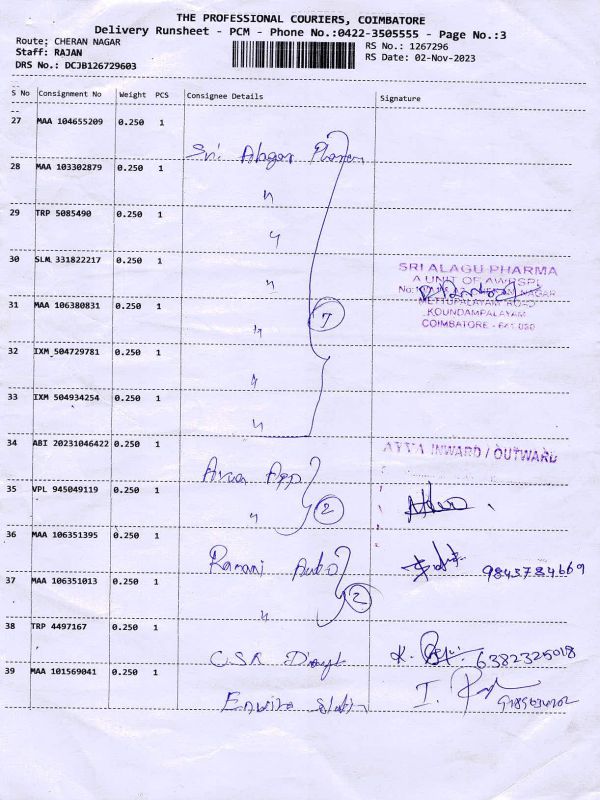 THE PROFESSIONAL COURIERS, COIMBATORE
Delivery Runsheet - PCM - Phone No.:0422-3505555 - Page No.:3
Route: CHERAN NAGAR RS No.: 1267296
Staff: RAJAN RS Date: 02-Nov-2023
DRS No.: DCJB126729603
S No Consignment No Weight PCS Consignee Details Signature
27 MAA 104655209 0.250 1
Sri Alagar
28 MAA 103302879 0.250 1
"
29 TRP 5085490 0.250 1
"
30 SLM 331822217 0.250 1
"
SRI ALAGU PHARMA
A UNIT OF
No: NAGAR
METTUPALAYAM ROAD
KOUNDAMPALAYAM
COIMBATORE - 641 030
31 MAA 106380831 0.250 1
" 7
32 IXM 504729781 0.250 1
"
33 IXM 504934254 0.250 1
"
34 ABI 20231046422 0.250 1
INWARD / OUTWARD
App
35 VPL 945049119 0.250 1
" 2
36 MAA 106351395 0.250 1
Ramani Auto 9843784669
37 MAA 106351013 0.250 1
" 2
38 TRP 4497167 0.250 1
6382325018
39 MAA 101569041 0.250 1